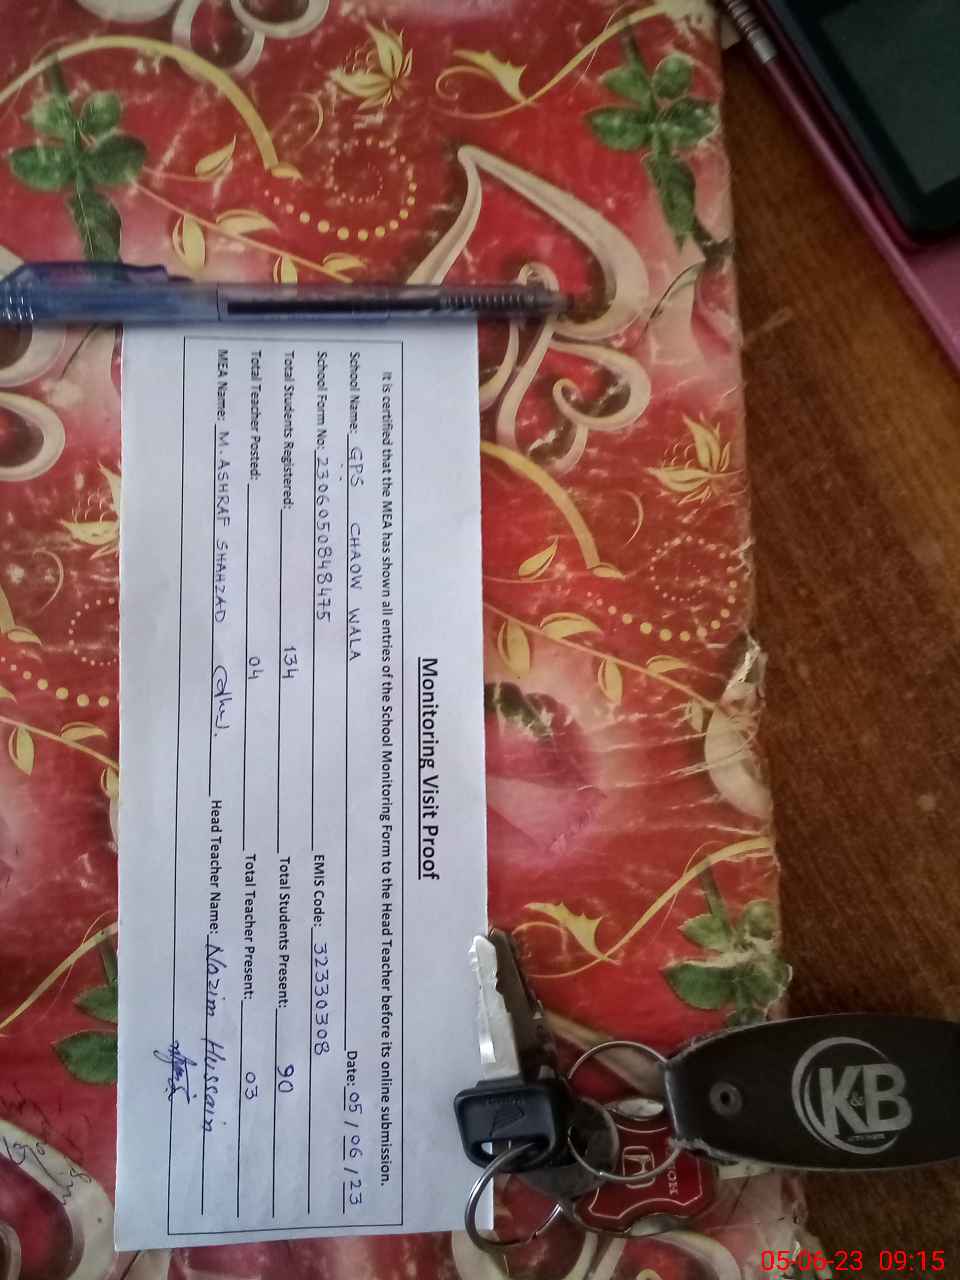 Monitoring Visit Proof
It is certified that the MEA has shown all entries of the School Monitoring Form to the Head Teacher before its online submission.
School Name: GPS CHAOW WALA Date: 05 / 06 / 23
School Form No: 2306050848475 EMIS Code: 32330308
Total Students Registered: 134 Total Students Present: 90
Total Teacher Posted: 04 Total Teacher Present: 03
MEA Name: M. ASHRAF SHAHZAD Head Teacher Name: Nazim Hussain
K&B
05-06-23 09:15